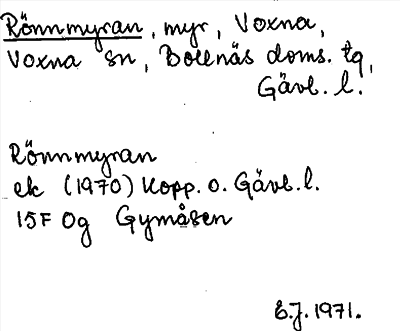 Rönnmyran, myr, Voxna,
Voxna sn, Bollnäs doms. tg,
Gävl. l.
Rönnmyran
ek (1970) Kopp. o. Gävl. l.
15F 0g Gymåsen
E.J. 1971.